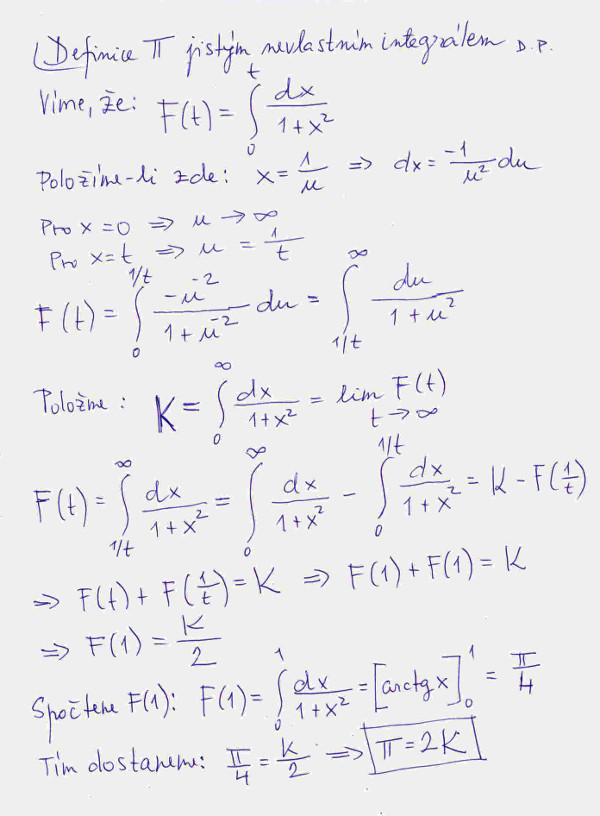 Definice π jistým nevlastním integrálem D.P.
Víme, že: F(t) = ∫₀ᵗ dx/(1+x²)
Položíme-li zde: x = 1/u ⇒ dx = -1/u² du
Pro x = 0 ⇒ u → ∞
Pro x = t ⇒ u = 1/t
F(t) = ∫₀^(1/t) -u⁻²/(1+u⁻²) du = ∫_(1/t)^∞ du/(1+u²)
Položme: K = ∫₀^∞ dx/(1+x²) = lim F(t) t→∞
F(t) = ∫_(1/t)^∞ dx/(1+x²) = ∫₀^∞ dx/(1+x²) - ∫₀^(1/t) dx/(1+x²) = K - F(1/t)
⇒ F(t) + F(1/t) = K ⇒ F(1) + F(1) = K
⇒ F(1) = K/2
Spočtene F(1): F(1) = ∫₀¹ dx/(1+x²) = [arctg x]₀¹ = π/4
Tím dostaneme: π/4 = K/2 ⇒ π = 2K